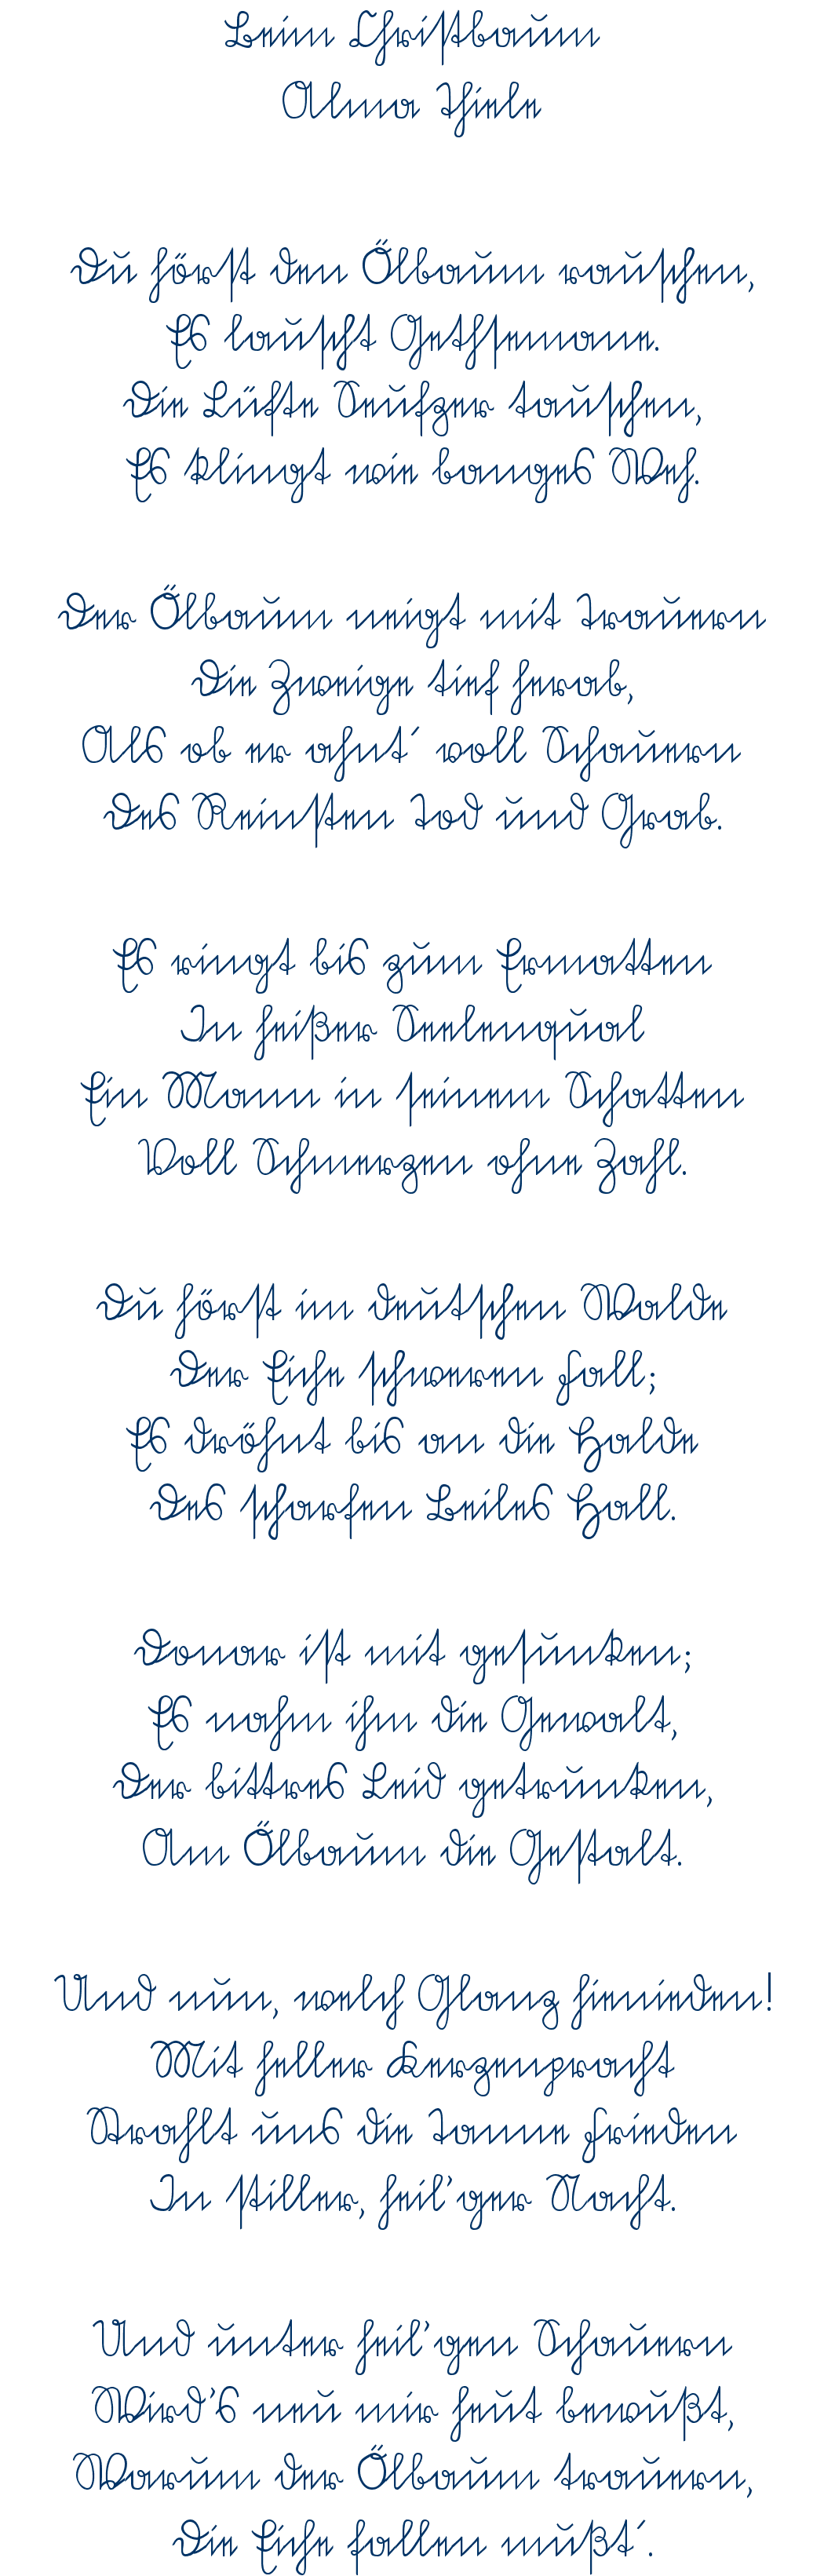 Beim Christbaum
Alma Thiele
Du hörst den Ölbaum rauschen,
Es lauscht Gethsemane.
Die Lüfte Seufzer tauschen,
Es klingt wie banges Weh.
Der Ölbaum neigt mit Trauern
Die Zweige tief herab,
Als ob er ahnt´ voll Schauern
Des Reinsten Tod und Grab.
Es ringt bis zum Ermatten
In heißer Seelenqual
Ein Mann in seinem Schatten
Voll Schmerzen ohne Zahl.
Du hörst im deutschen Walde
Der Eiche schweren Fall;
Es dröhnt bis an die Halde
Des scharfen Beiles Hall.
Donar ist mit gesunken;
Es nahm ihm die Gewalt,
Der bittres Leid getrunken,
Am Ölbaum die Gestalt.
Und nun, welch Glanz hienieden!
Mit heller Kerzenpracht
Strahlt uns die Tanne Frieden
In stiller, heil'ger Nacht.
Und unter heil'gen Schauern
Wird's neu mir heut bewußt,
Warum der Ölbaum trauern,
Die Eiche fallen mußt´.